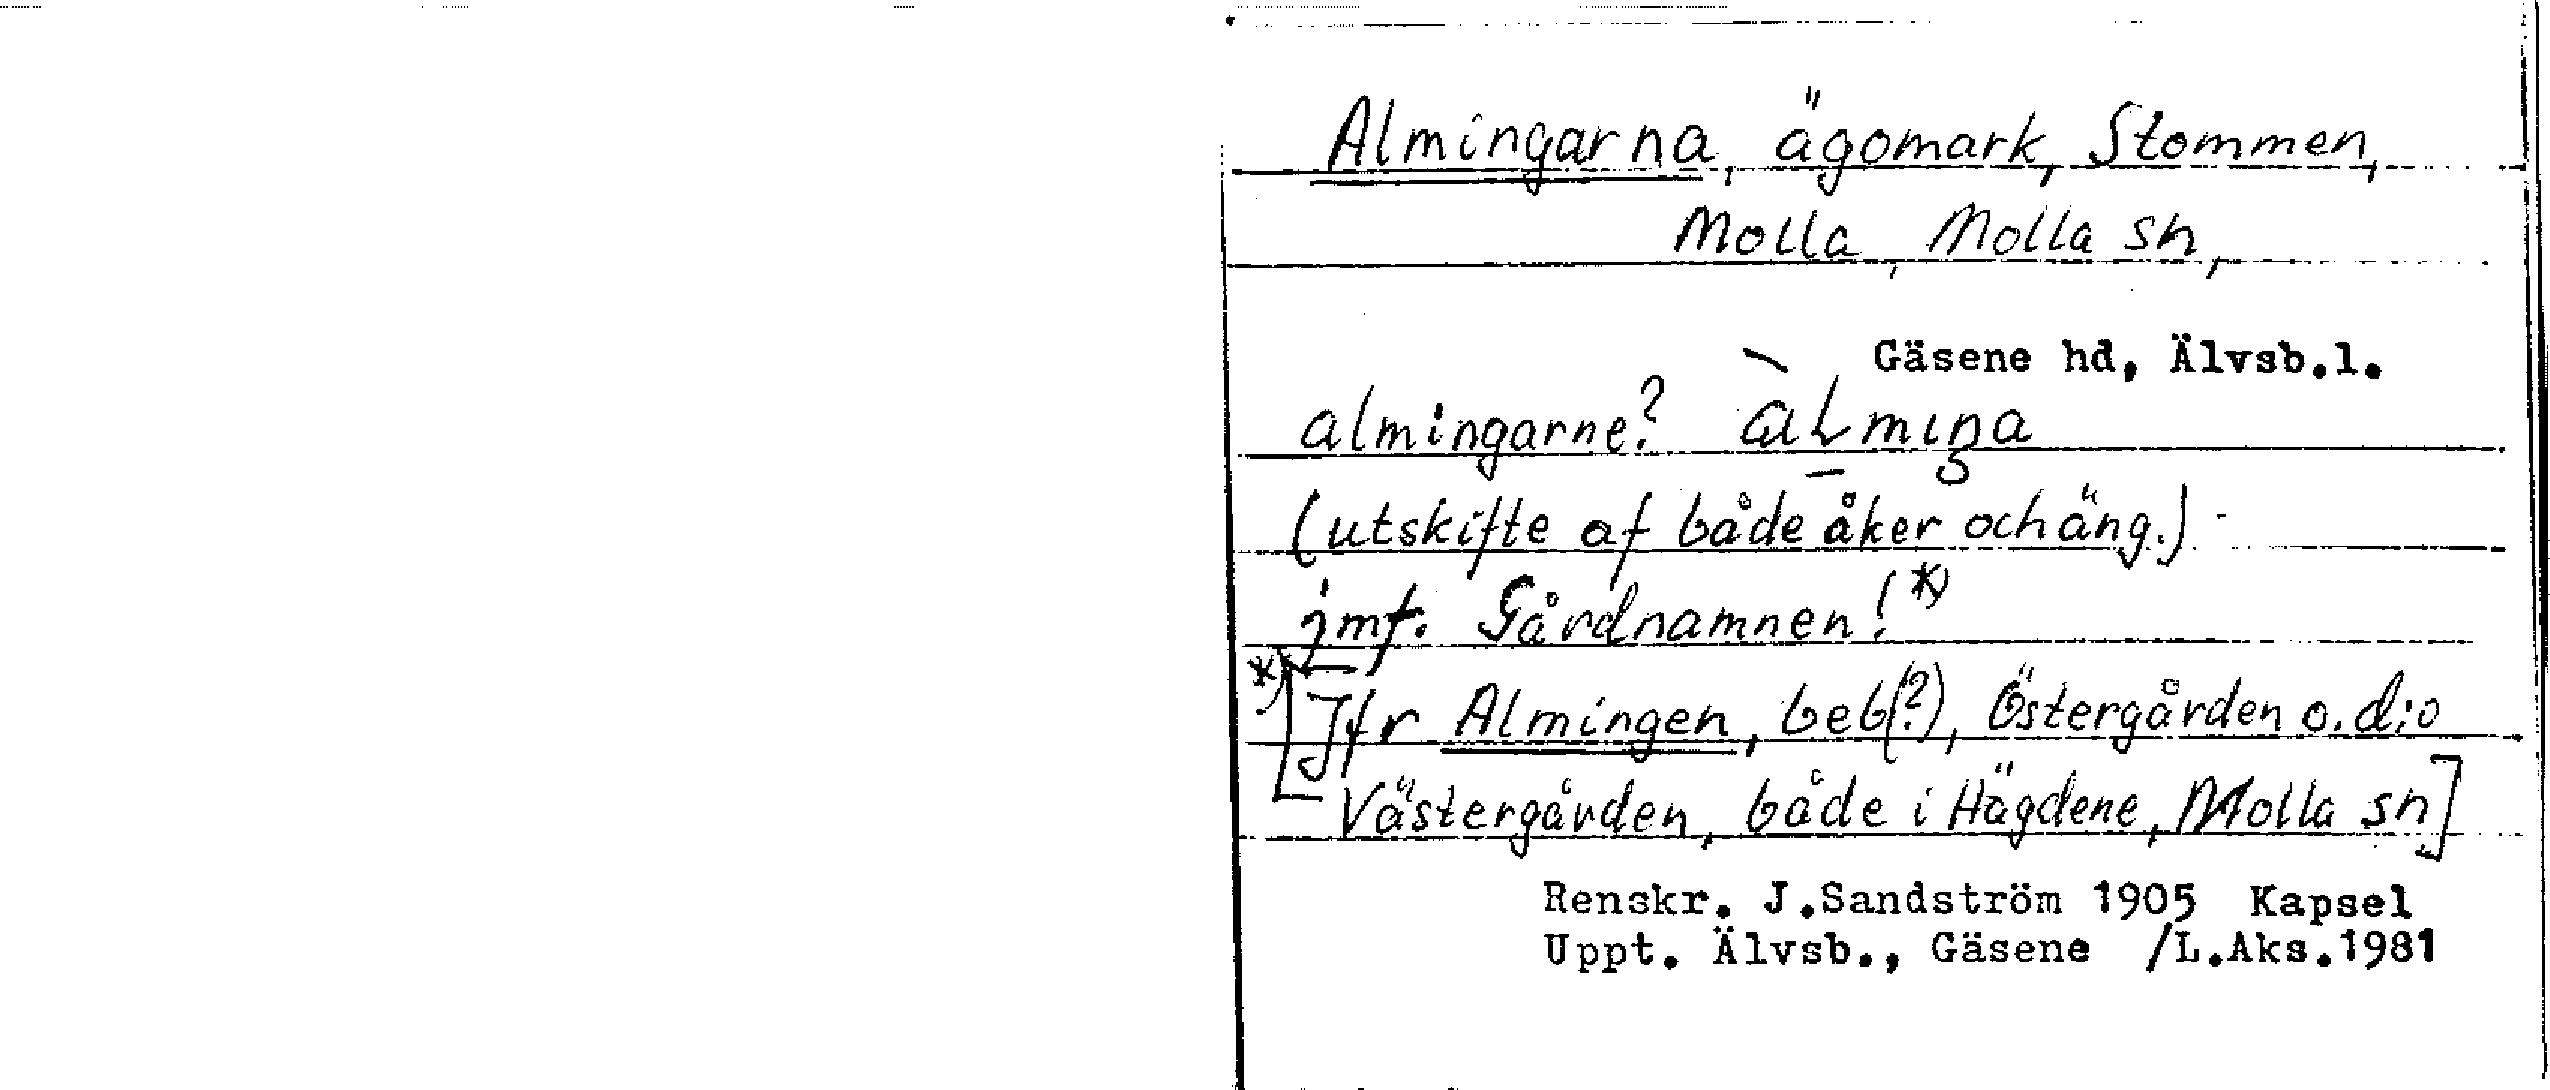 Almingarna, ägomark, Stommen,
Molla, Molla sn,
Gäsene hd, Älvsb.l.
almingarne?
(utskifte af både åker och äng.)
jmf. Gårdnamnen! *)
*) [Jfr Almingen, beb(?), Östergården o. d:o
Västergården, både i Hägdene, Molla sn]
Renskr. J.Sandström 1905 Kapsel
Uppt. Älvsb., Gäsene /L.Aks.1981